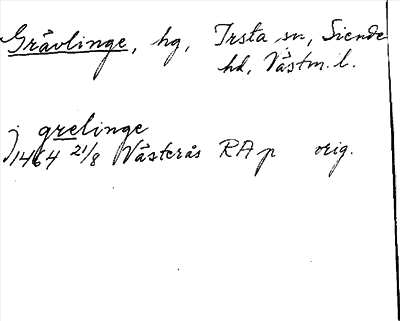 Grävlinge, hg, Irsta sn, Siende
hd, Västm. l.
j grelinge
1464 21/8 Västerås RA p orig.